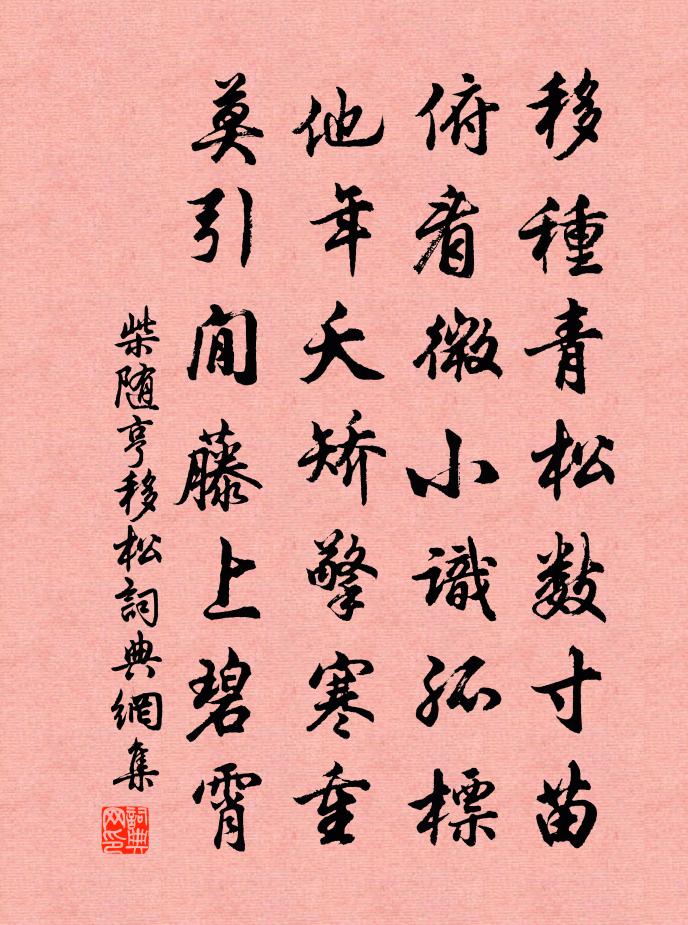 移種青松数寸苗
俯看微小識孤標
他年夭矯擎寒重
莫引閒藤上碧霄
柴随亨移松詞典網集
詞典網印